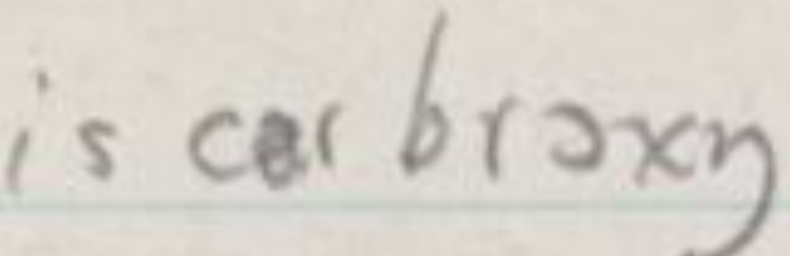 is carbroxy